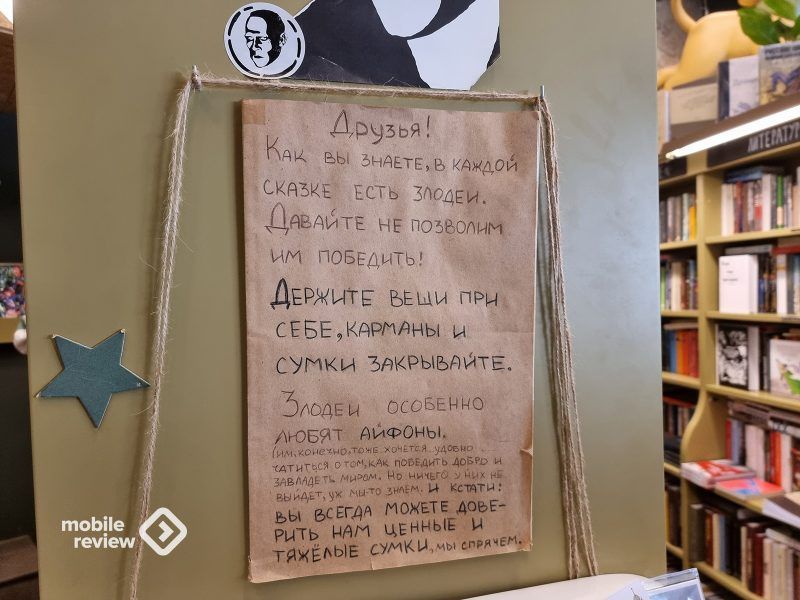 Друзья!
Как вы знаете, в каждой
сказке есть злодеи.
Давайте не позволим
им победить!
Держите вещи при
себе, карманы и
сумки закрывайте.
Злодеи особенно
любят айфоны.
(им, конечно, тоже хочется удобно
чатиться о том, как победить добро и
завладеть миром. Но ничего у них не
выйдет, уж мы-то знаем. И кстати:
вы всегда можете дове-
рить нам ценные и
тяжёлые сумки, мы спрячем.
ЛИТЕРАТУР
mobile
review